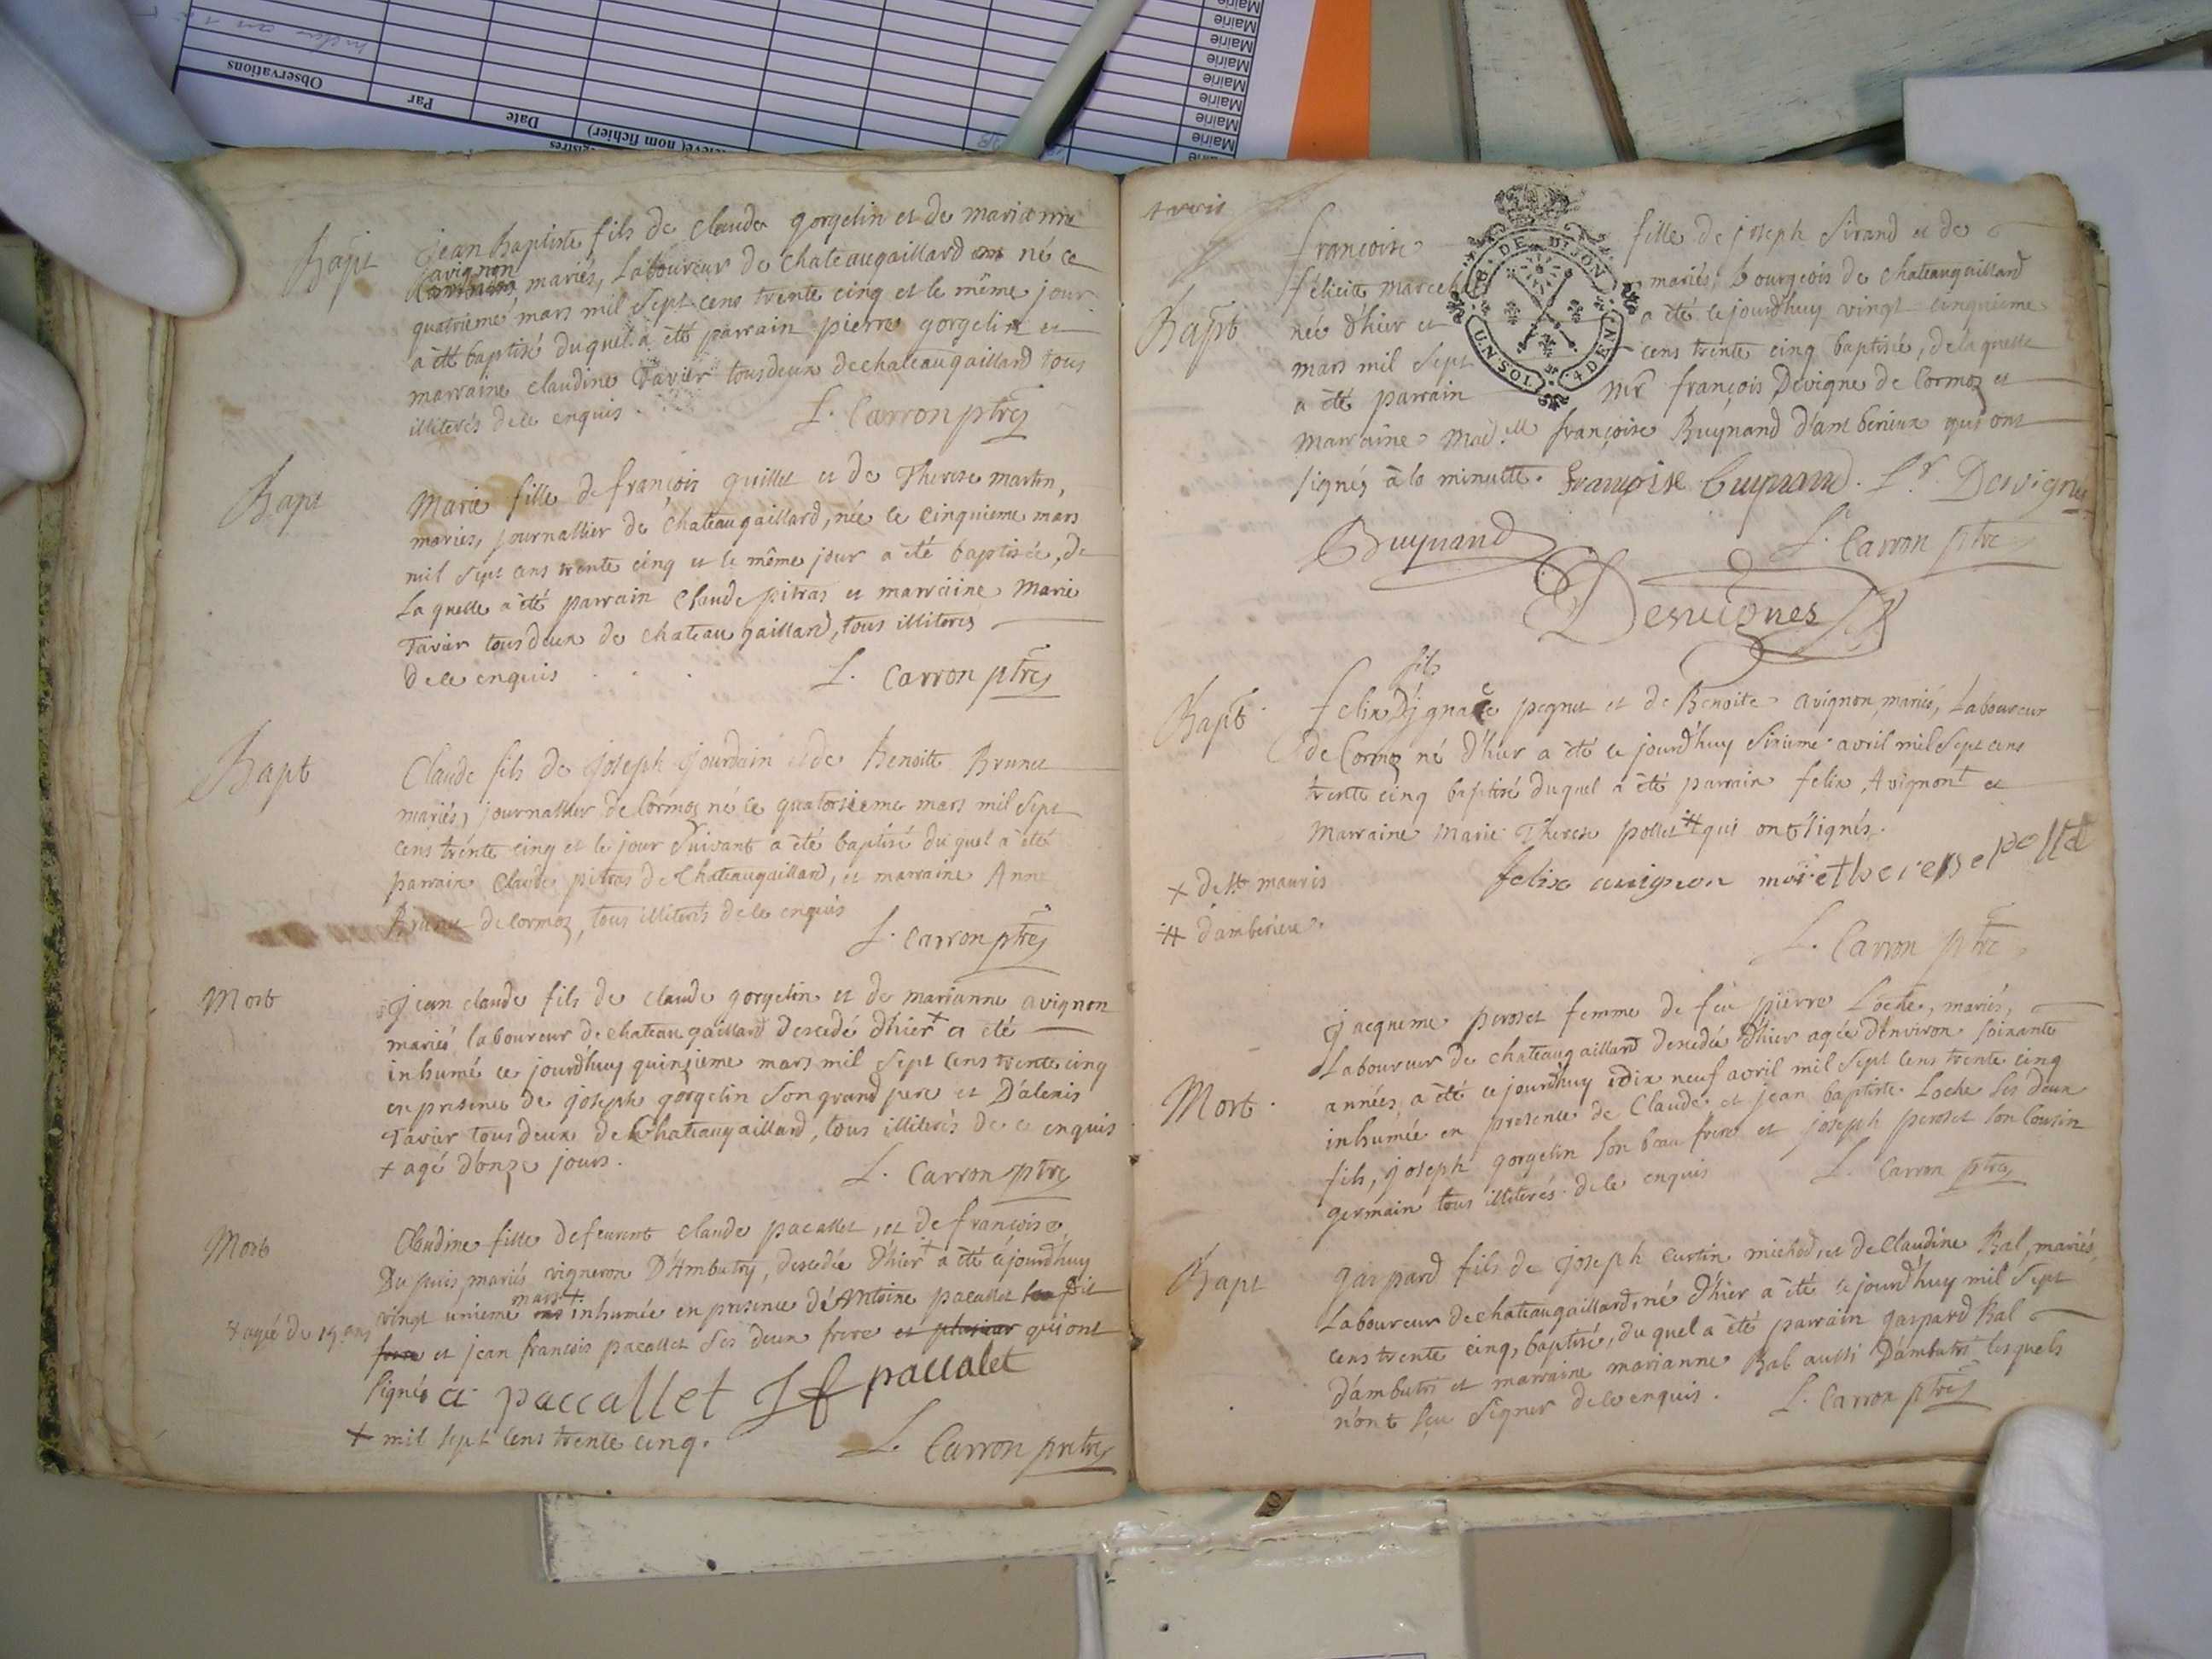 Observations
Par
Date
relevé( nom fichier)
Mairie
Mairie
Mairie
Mairie
Mairie
Mairie
Mairie
Mairie
Bapt
jean Baptiste fils de claude gorgelin et de marianne
avignon
mariés, Laboureur de chateaugaillard né ce
quatrieme mars mil sept cens trente cinq et le même jour
a été baptisé duquel a été parrain pierre gorgelin et
marraine claudine Tavier tous deux de chateaugaillard tous
illiterés de ce enquis. L. Carron ptre
Bapt
Marie fille de françois guillet et de Therese martin,
mariés, journallier de chateaugaillard, née le cinquieme mars
mil sept cens trente cinq et le même jour a été baptisée, de
Laquelle a été parrain Claude pitras et marraine Marie
Tavier tous deux de chateaugaillard, tous illiterés
de ce enquis . . . L. Carron ptre
Bapt
Claude fils de joseph jourdain et de Benoitte Brunet
mariés, journallier de Cormoz né le quatorsieme mars mil sept
cens trente cinq et le jour suivant a été baptisé duquel a été
parrain Claude pitras de Chateaugaillard, et marraine Anne
Brunet de Cormoz, tous illiterés de ce enquis
L. Carron ptre
Mort
jean claude fils de claude gorgelin et de marianne avignon
mariés laboureur de chateaugaillard decedé d'hier + a été
inhumé ce jourd'huy quinzieme mars mil sept cens trente cinq
en presence de joseph gorgelin son grand pere et D'alexis
Tavier tous deux de Chateaugaillard, tous illiterés de ce enquis
+ agé d'onze jours. L. Carron ptre
Mort
Claudine fille de feu claude pacallet, et de françoise
Dupuis, mariés vigneron D'Ambutry, decedée d'hier + a été cejourd'huy
mars +
vingt unieme inhumée en presence de Antoine pacallet
+ agée de 19 ans
et jean francois pacallet ses deux frere et plusieur qui ont
signés a paccallet Jf paccalet
+ mil sept cens trente cinq.
L. Carron pretre
françoise fille de joseph Sirand et de
félicité mariés, bourgeois de chateaugaillard
Bapt
née d'hier et a été cejourd'huy vingt cinquieme
mars mil sept cens trente cinq baptisée, de laquelle
a été parrain Mr françois Devigne de Cormoz et
marraine Madlle françoise Buynand d'amberieux qui ont
signés à la minutte. françoise buynand. Sr. Desvignes
G. B. DE DIJON
UN. SOL. 4 DEN.
Buynand L. Carron ptre
Desvignes
fils
Bapt
felix D'jgnace pegnet et de Benoite avignon, mariés, Laboureur
de Cormoz né d'hier a été ce jourd'huy sixieme avril mil sept cens
trente cinq baptisé duquel a été parrain felix Avignon + et
marraine Marie Therese pollet # qui ont signés.
+ de St. mauris
felix avignon marie therese pollet
# d'amberieu.
L. Carron ptre
jacqueme peroset femme de feu pierre Loche, mariés,
Laboureur de chateaugaillard decedée d'hier agée d'environ soixante
Mort
années a été ce jourd'huy dix neuf avril mil sept cens trente cinq
inhumée en presence de Claude et jean baptiste Loche ses deux
fils, joseph gorgelin son beau frere et joseph peroset son Cousin
germain tous illiterés de ce enquis L. Carron ptre
Bapt
gaspard fils de joseph curtin michod, et de Claudine Bal, mariés,
Laboureur de chateaugaillard, né d'hier a été ce jourd'huy mil sept
cens trente cinq, baptisé, duquel a été parrain gaspard Bal
d'ambutri et marraine marianne Bal aussi D'ambutri lesquels
n'ont sçu signer de ce enquis. L. Carron ptre